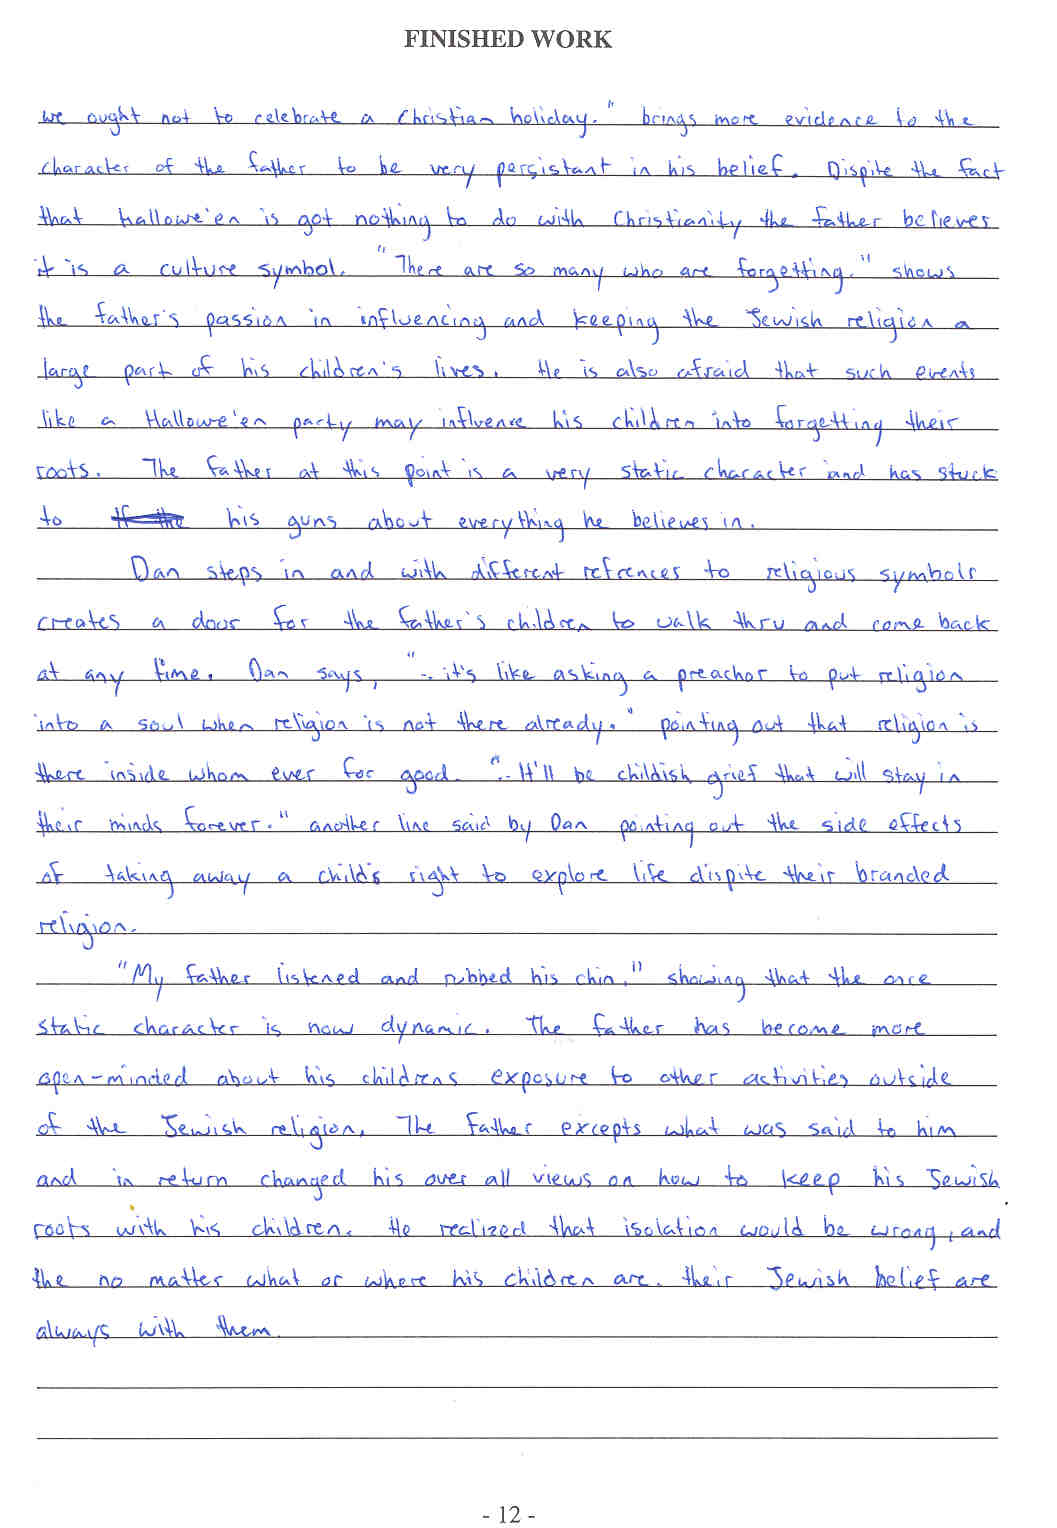 FINISHED WORK
we ought not to celebrate a Christian holiday." brings more evidence to the
character of the father to be very persistant in his belief. Dispite the fact
that hallowe'en is got nothing to do with Christianity the father believes
it is a culture symbol. "There are so many who are forgetting." shows
the father's passion in influencing and keeping the Jewish religion a
large part of his children's lives. He is also afraid that such events
like a Hallowe'en party may influence his children into forgetting their
roots. The father at this point is a very static character and has stuck
to his guns about everything he believes in.
Dan steps in and with different refrences to religious symbols
creates a dour for the father's children to walk thru and come back
at any time. Dan says, ".. it's like asking a preachor to put religion
into a soul when religion is not there already." pointing out that religion is
there inside whom ever for good. ".. It'll be childish grief that will stay in
their minds forever." another line said by Dan pointing out the side effects
of taking away a child's right to explore life dispite their branded
religion.
"My father listened and rubbed his chin." showing that the once
static character is now dynamic. The father has become more
open-minded about his childrens exposure to other activities outside
of the Jewish religion. The Father excepts what was said to him
and in return changed his over all views on how to keep his Jewish
roots with his children. He realized that isolation would be wrong, and
the no matter what or where his children are. their Jewish belief are
always with them.
- 12 -